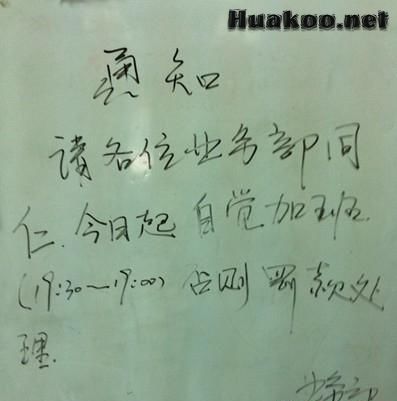 Huakoo.net
通知
请各位业务部同
仁.今日起 自觉加班.
(19:30～19:00) 否则 罚款处
理.
业务部